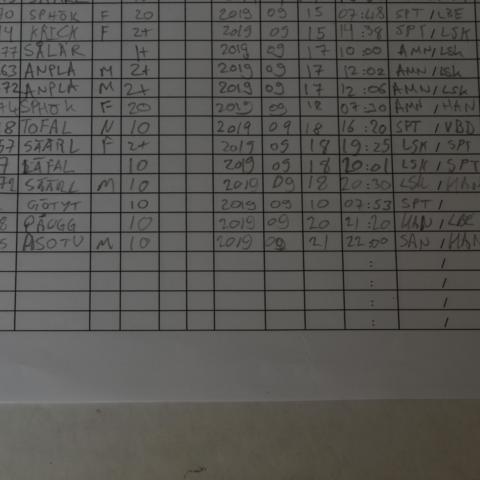 70 SPHÖK F 20 2019 09 15 07:48 SPT / LBE
14 KRICK F 2+ 2019 09 15 14:38 SPT / LSK
77 SALAR 1+ 2019 09 17 10:00 AMN / LSK
63 ANPLA M 2+ 2019 09 17 12:02 AMN / LSK
72 ANPLA M 2+ 2019 09 17 12:06 AMN / LSK
SPHÖK F 20 2019 09 18 07:20 AMN / HAN
18 TOFAL N 10 2019 09 18 16:20 SPT / VBD
57 SÄÄRL F 2+ 2019 09 18 19:25 LSK / SPT
7 LÄFAL 10 2019 09 18 20:01 LSK / SPT
72 SÄÄRL M 10 2019 09 18 20:30 LSK / HAN
GÖTYT 10 2019 09 10 07:53 SPT /
8 PÄUGG 10 2019 09 20 21:20 HAN / LBE
5 ASOTU M 10 2019 09 21 22:00 SAN / HAN
: /
: /
: /
: /